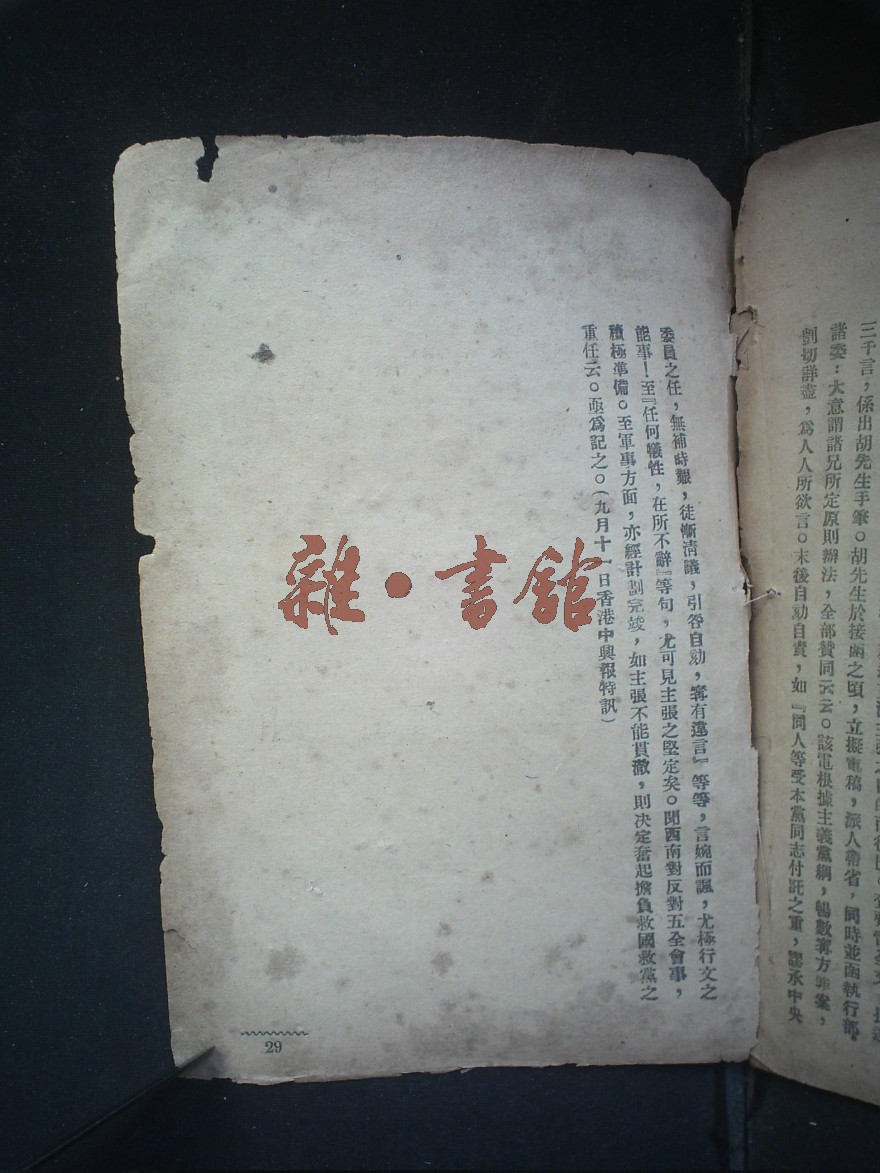 三千言,係出胡先生手筆。胡先生於接函之頃,立擬電稿,派人帶省,同時並函執行部
諸委:大意謂諸兄所定原則辦法,全部贊同云云。該電根據主義黨綱,暢數寗方罪案,
剴切詳盡,爲人人所欲言。末後自劾自責,如『同人等受本黨同志付託之重,謬承中央
委員之任,無補時艱,徒慚淸議,引咎自劾,寗有遑言』等等,言婉而諷,尤極行文之
能事!至『任何犧牲,在所不辭』等句,尤可見主張之堅定矣。聞西南對反對五全會事,
積極準備。至軍事方面,亦經計劃完竣,如主張不能貫澈,則決定奮起擔負救國救黨之
重任云。亟爲記之。(九月十一日香港中興報特訊)
雜·書館
29